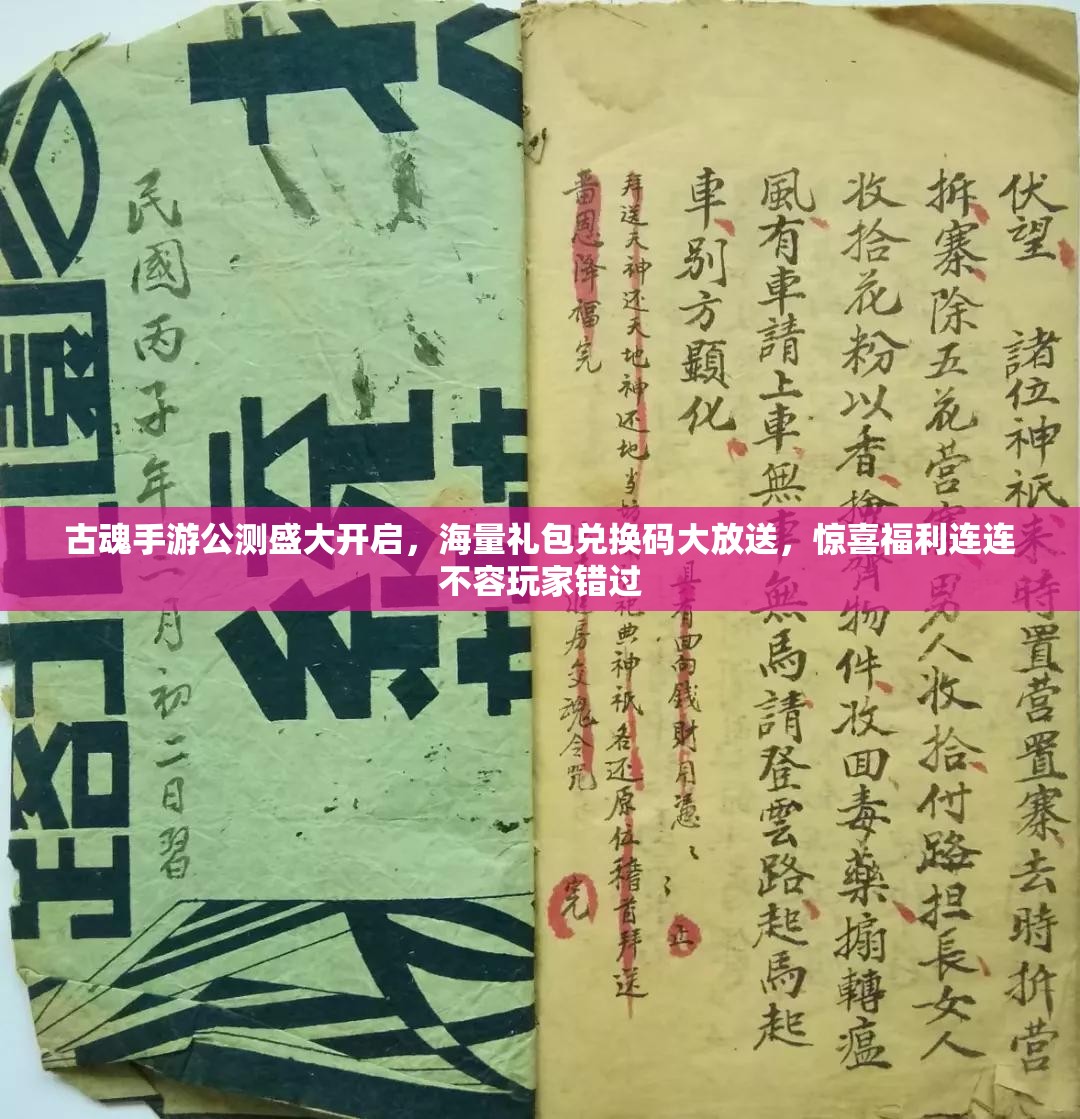 伏望 諸位神祇来時置营置寨去時拆营
拆寨除五花营
男人收拾付路担長女人
收拾花粉以香
物件收回毒藥搧轉瘟
風有車請上車無車無馬請登雲路起馬起
車別方顯化
具看面向錢財用憑
正
拜送天神还天地神还地当坊
祀典神祇各还原位稽首拜送
畨恩降福完
房交魂令咒
完
民國丙子年二月初二日習
古魂手游公测盛大开启，海量礼包兑换码大放送，惊喜福利连连
不容玩家错过